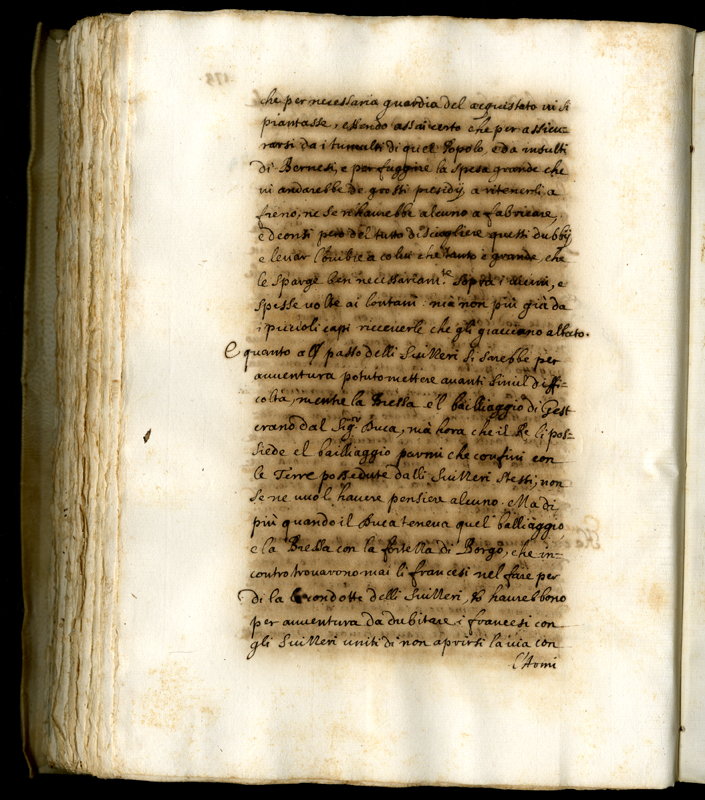 che per necessaria guardia del acquistato vi si
piantasse, essendo assai certo che per assicu-
rarsi da i tumulti di quel Popolo, e da insulti
di Bernesi, e per fuggire la spesa grande che
vi andarebbe de grossi presidij a ritenerli a
freno, ne se n'haurebbe alcuno a fabricare,
ed però del tutto di sciogliere questi dubbij
e levar l'ombre a colui che tanto è grande, che
le sparge ben necessariam.te sopra i vicini, e
spesse volte ai lontani: mà non più già da
i piccioli capi riceverle che gli giacciano allato.
E quanto al passo delli Suizzeri si sarebbe per
auuentura potuto mettere auanti simil diffi-
coltà, mentre la Bressa e'l bailliaggio di Gest
erano dal Sig.r Duca, mà hora che il Re li pos-
siede el bailliaggio parmi che confini con
le Terre possedute dalli Suizzeri stessi, non
se ne vuol hauere pensiere alcuno. Ma di
più quando il Duca teneua quel bailliaggio,
e la Bressa con la fortezza di Borgo, che in-
contro trouauono mai li francesi nel fare per
di la condotte delli Suizzeri, haurebbono
per auuentura da dubitare i francesi con
gli Suizzeri uniti di non aprirsi la via con
l'Armi